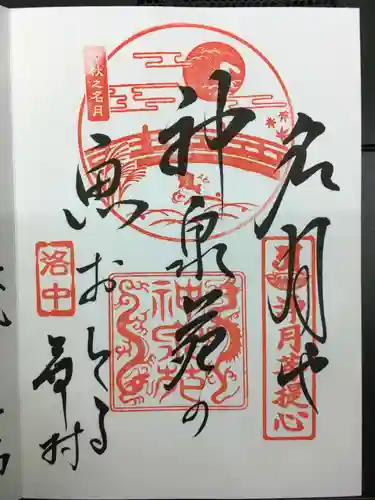 名月や
神泉苑の
魚おどる
蕪村
秋之名月
洛中
神泉苑
月菩提心